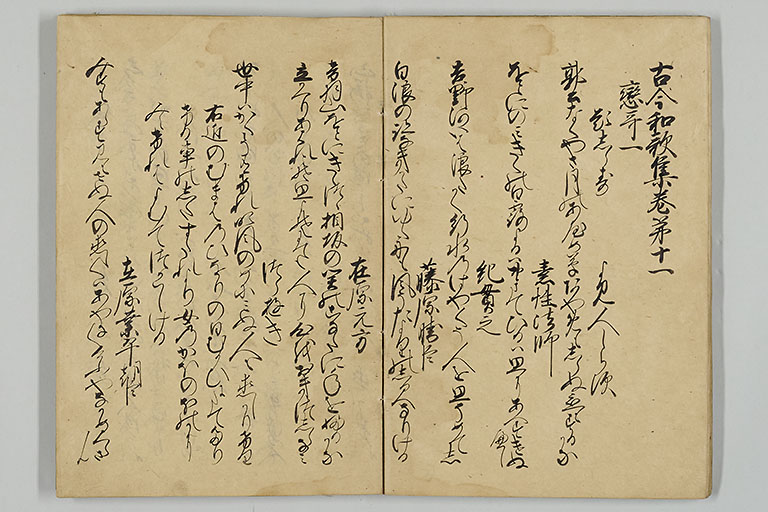 古今和歌集巻第十一
戀哥一
題しらす
よみ人しらす
郭公なくやさ月のあやめ草あやめもしらぬ恋もするかな
素性法師
をとにのみきくの白露よるはおきてひるは思ひにあへすけぬ
へし
紀貫之
吉野河いは浪たかく行水のはやくそ人を思そめてし
藤原勝臣
白浪の跡なきかたにゆく舟も風そたよりのしるへなりける
在原元方
音羽山をとにきゝつゝ相坂の関のこなたに年をふるかな
立かへりあはれとそ思よそにても人に心をおきつしらなみ
つらゆき
世中はかくこそありけれ吹風のめに見ぬ人も恋しかりけり
右近のむまはのひをりの日むかひにたてたり
ける車のしたすたれより女のかほのほのかに
みえけれはよむてつかはしける
在原業平朝臣
みすもあらすみもせぬ人の恋しくはあやなくけふやなかめくらさん